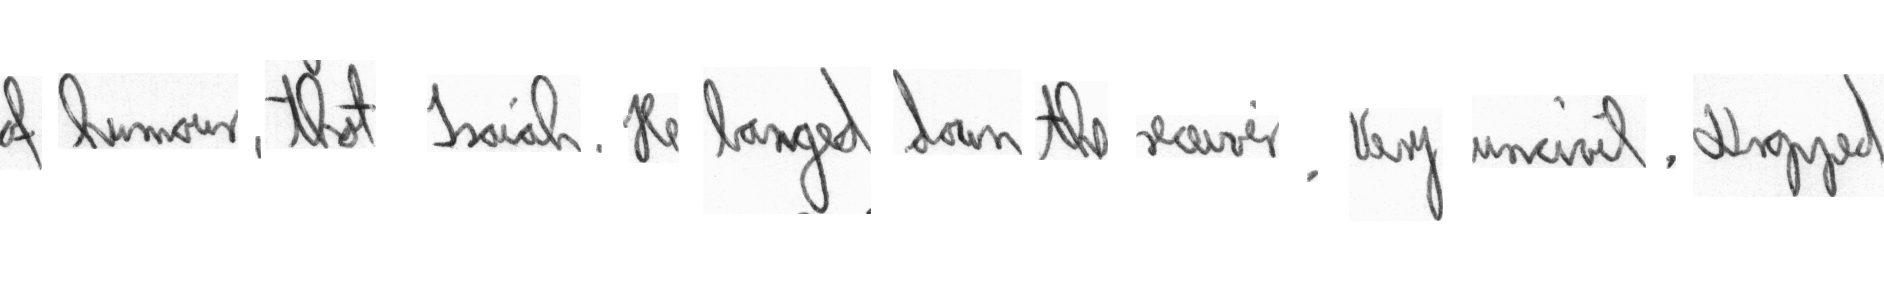 of humour, that Isaiah. He banged down the receiver. Very uncivil. Dropped